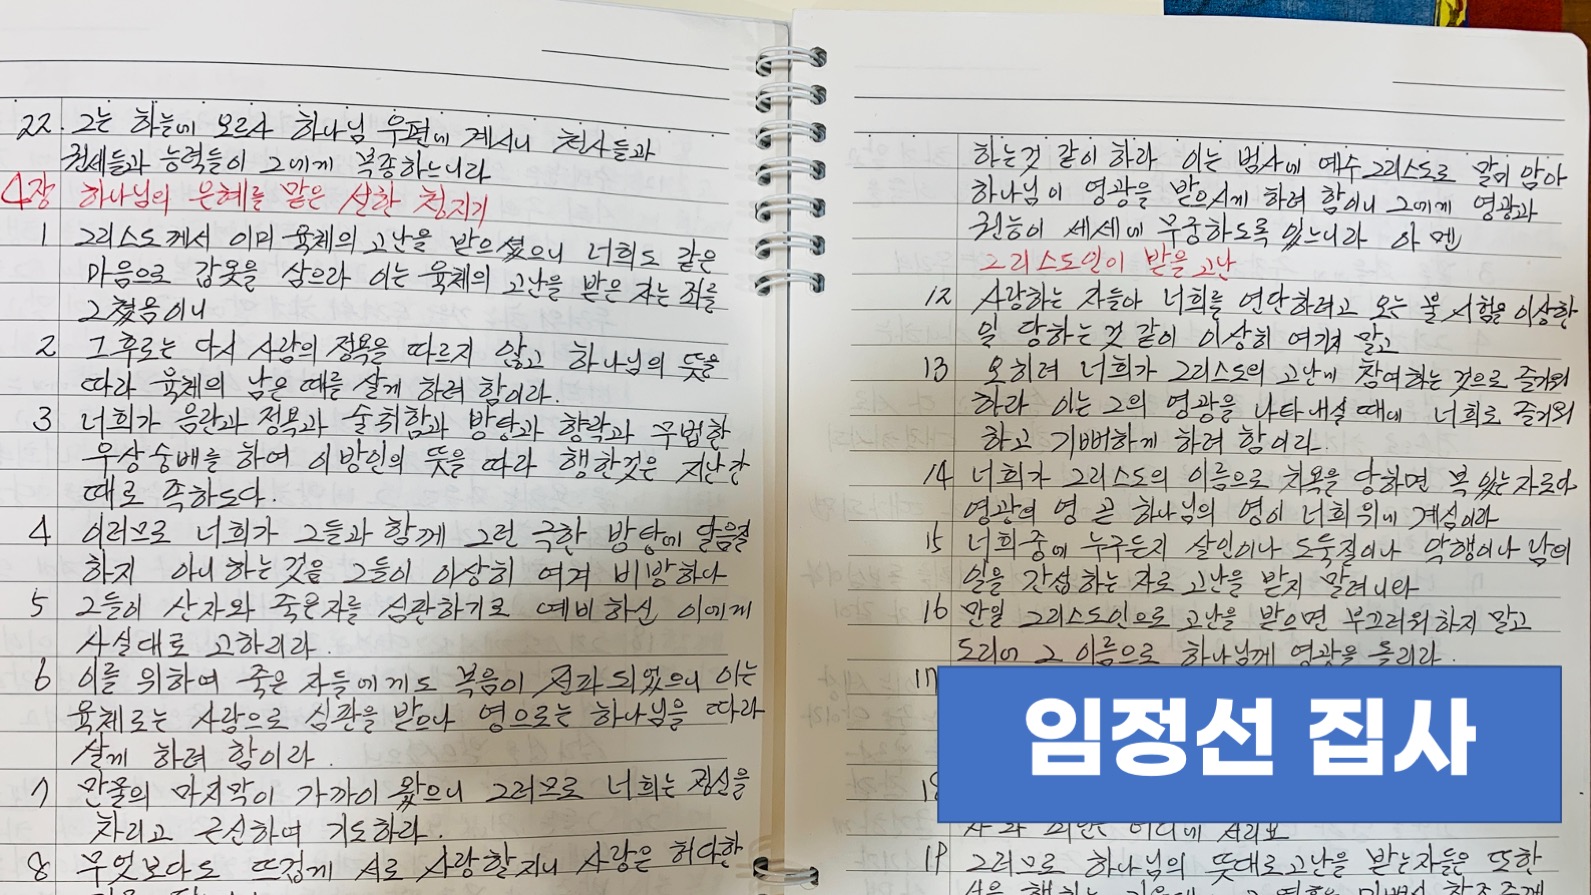 22. 그는 하늘에 오르사 하나님 우편에 계시니 천사들과
권세들과 능력들이 그에게 복종하느니라
4장 하나님의 은혜를 맡은 선한 청지기
1 그리스도께서 이미 육체의 고난을 받으셨으니 너희도 같은
마음으로 갑옷을 삼으라 이는 육체의 고난을 받은 자는 죄를
그쳤음이니
2 그 후로는 다시 사람의 정욕을 따르지 않고 하나님의 뜻을
따라 육체의 남은 때를 살게 하려 함이라.
3 너희가 음란과 정욕과 술취함과 방탕과 향락과 무법한
우상숭배를 하여 이방인의 뜻을 따라 행한것은 지난간
때로 족하도다.
4 이러므로 너희가 그들과 함께 그런 극한 방탕에 달음질
하지 아니하는 것을 그들이 이상히 여겨 비방하나
5 그들이 산자와 죽은자를 심판하기로 예비하신 이에게
사실대로 고하리라.
6 이를 위하여 죽은 자들에게도 복음이 전파되었으니 이는
육체로는 사람으로 심판을 받으나 영으로는 하나님을 따라
살게 하려 함이라.
7 만물의 마지막이 가까이 왔으니 그러므로 너희는 정신을
차리고 근신하여 기도하라.
8 무엇보다도 뜨겁게 서로 사랑할지니 사랑은 허다한
하는것 같이 하라 이는 범사에 예수 그리스도로 말미암아
하나님이 영광을 받으시게 하려 함이니 그에게 영광과
권능이 세세에 무궁하도록 있느니라 아멘
그리스도인이 받을 고난
12 사랑하는 자들아 너희를 연단하려고 오는 불 시험을 이상한
일 당하는 것 같이 이상히 여기지 말고
13 오히려 너희가 그리스도의 고난에 참여하는 것으로 즐거워
하라 이는 그의 영광을 나타내실 때에 너희로 즐거워
하고 기뻐하게 하려 함이라.
14 너희가 그리스도의 이름으로 치욕을 당하면 복 있는 자로다
영광의 영 곧 하나님의 영이 너희 위에 계심이라
15 너희중에 누구든지 살인이나 도둑질이나 악행이나 남의
일을 간섭하는 자로 고난을 받지 말려니와
16 만일 그리스도인으로 고난을 받으면 부끄러워하지 말고
도리어 그 이름으로 하나님께 영광을 돌리라.
17
임정선 집사
18
19 그러므로 하나님의 뜻대로 고난을 받는자들은 또한